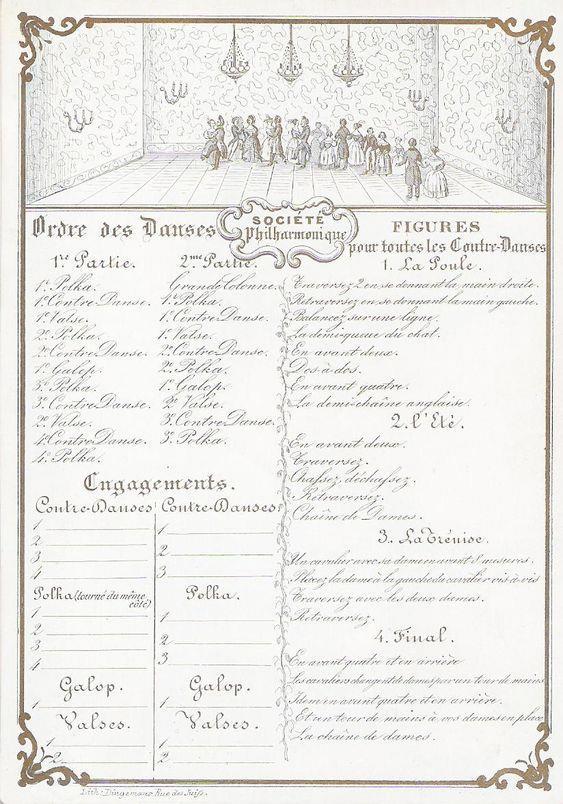 SOCIÉTÉ
Philharmonique
Ordre des Danses
1re Partie.
1e Polka.
1e Contre Danse.
1e Valse.
2e Polka.
2e Contre Danse.
1r Galop.
3e Polka.
3e Contre Danse.
2e Valse.
4e Contre Danse.
4e Polka.
2me Partie.
Grande Colonne.
1e Polka.
1e Contre Danse.
1e Valse.
2e Contre Danse.
2e Polka.
1r Galop.
2e Valse.
3e Contre Danse.
3e Polka.
Engagements.
Contre-Danses
1
2
3
4
Polka (tourné du même côté)
1
2
3
4
Galop.
1
Valses.
1
2
Contre-Danses
1
2
3
Polka.
1
2
3
Galop.
1
Valses.
1
2
FIGURES
pour toutes les Contre-Danses
1. La Poule.
Traversez 2 en se donnant la main droite.
Retraversez en se donnant la main gauche.
Balancez sur une ligne.
La demi-queue du chat.
En avant deux.
Dos à dos.
En avant quatre.
La demi-chaîne anglaise.
2. l'Eté.
En avant deux.
Traversez.
Chassez, déchassez.
Retraversez.
Chaîne de Dames.
3. La Trénise.
Un cavalier avec sa dame en avant 8 mesures.
Placez la dame à la gauche du cavalier vis à vis
Traversez avec les deux dames.
Retraversez.
4. Final.
En avant quatre et en arrière
Les cavaliers changent de dames par un tour de mains
Idem en avant quatre et en arrière.
Et un tour de mains à vos dames en place
La chaîne de dames.
Lith: Dingemans Rue des Juifs.